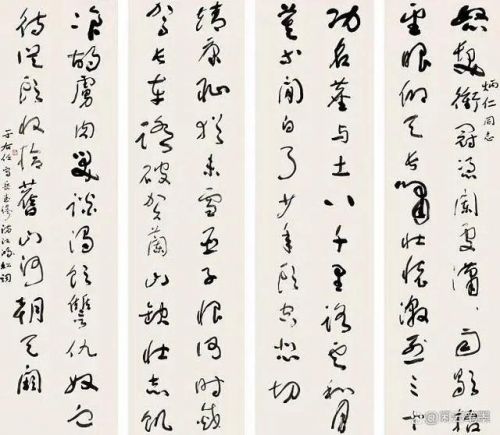 炳仁同志
怒髮衝冠憑闌處瀟瀟雨歇抬
望眼仰天長嘯壯懷激烈三十
功名塵与土八千里路雲和月
莫等閒白了少年頭空悲切
靖康恥猶未雪臣子恨何時滅
駕長車踏破賀蘭山缺壯志飢
飡胡虜肉笑談渴飲讐仇奴血
待從頭收拾舊山河朝天闕
于右任寫岳武穆滿江紅詞